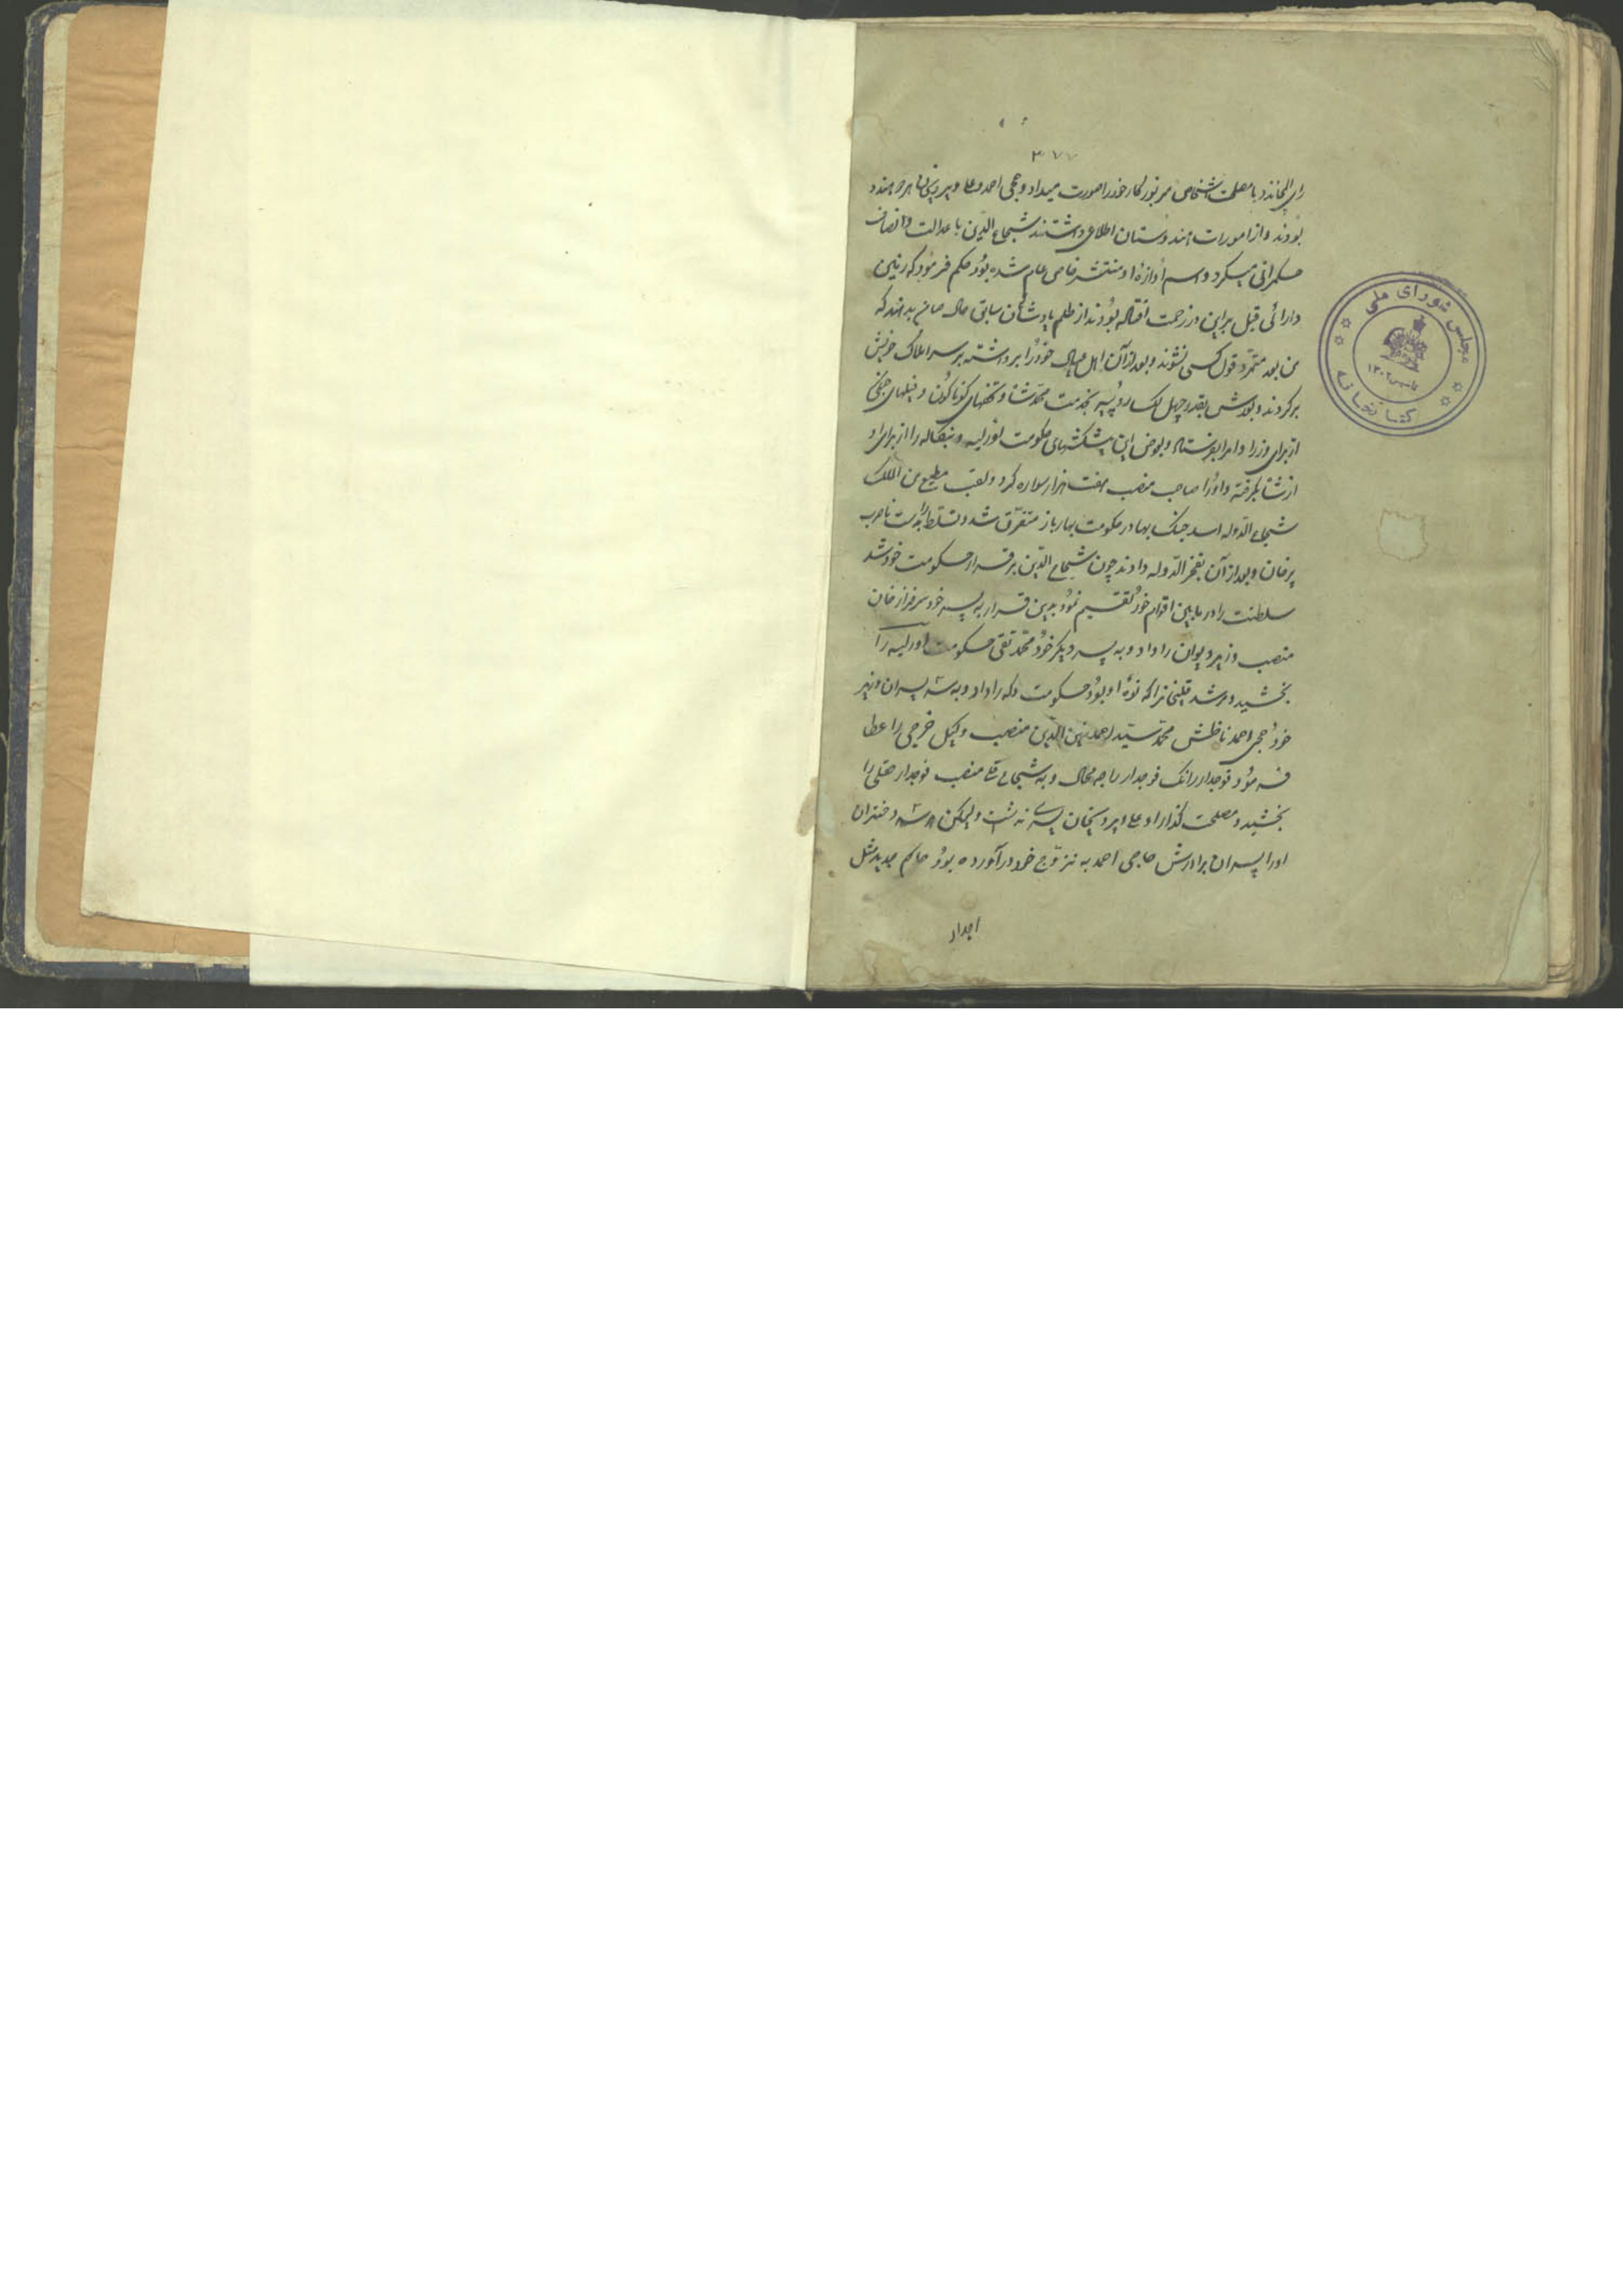 ۳۷۷
بودند و از امورات هندوستان اطلاع داشتند شجاع الدین با عدالت و انصاف
حکمرانی میکرد و اسم آوازهٔ او منتشر خاص عام شده بود حکم فرمود که زمین
دارائی قبل بر این در زحمت افتاده بودند از ظلم پادشاهان سابق حال ضامن بدهند که
من بعد متمرد قول کسی نشوند و بعد از آن اهل عیال خود را برداشته بر سر املاک خویش
برگردند و بعدش بقدر چهل لک روپیه بخدمت محمد شاه و تحفهای گوناگون و فیلهای جنگی
از برای وزرا و امرا بفرستاد و بعوض این پیشکشهای حکومت اورلیه و بنگاله را از برای او
از شاه گرفته و او را صاحب منصب هفت هزار سواره کرد و لقب مطیع من الملک
شجاع الدوله اسد جنگ بهادر حکومت بهار باز متفرق شد و تسلط را بدست ناصرب
یر خان و بعد از آن بفخر الدوله دادند چون شجاع الدین برقرار حکومت خود شد
سلطنت را در مابین اقوام خود تقسیم نمود بدین قرار به پسر خود سرفراز خان
منصب وزیر دیوان را داد و به پسر دیگر خود محمد تقی حکومت اورلیه را
بخشید و مرشد قلیخانرا که نوهٔ او بود حکومت دکه را داد و به سه پسران وزیر
خود حجی احمد ناظش محمد سید احمد زین الدین منصب وکیل خرجی را عطا
فرمود فوجدار رانک فوجدار راجه محال و به شجاع قلی منصب فوجدار هقلی را
بخشید و مصلحت گذار او علی ویردیخان پسری نداشت ولیکن سه دختران
او را پسران برادرش حاجی احمد به تزوج خود درآورده بود حاکم جدید مثل
اجداد
مجلس شورای ملی
کتابخانه
۱۳۰۲